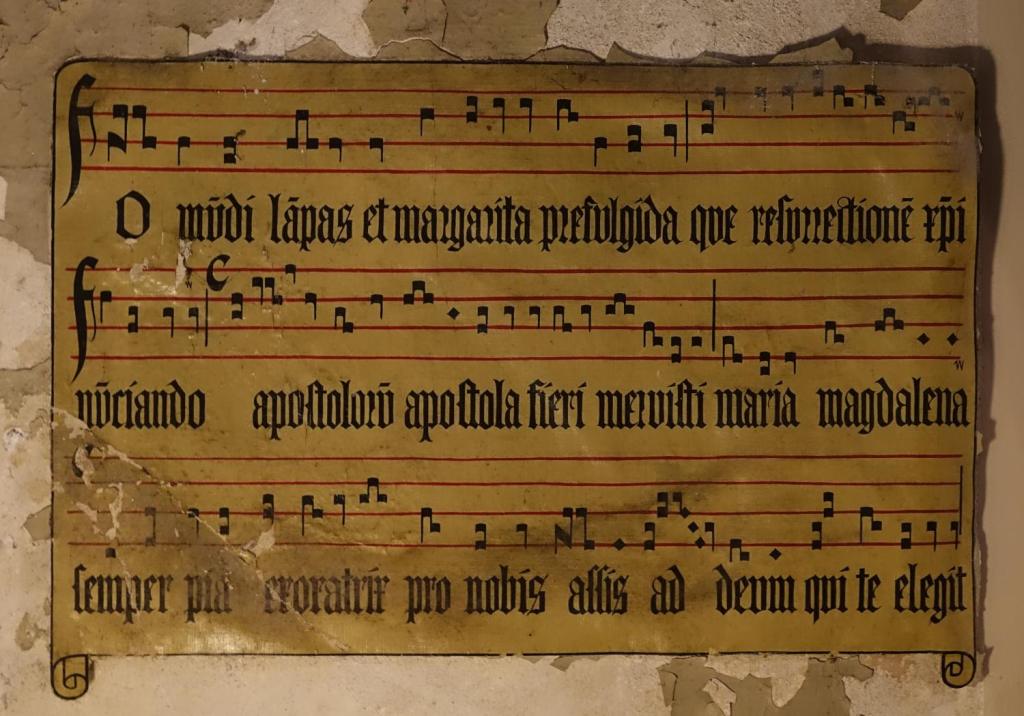 O mūdi lāpas et margarita prefulgida que resurrectionē xp̄i
nūciando apostolorū apostola fieri meruisti maria magdalena
semper pia exoratrix pro nobis assis ad deum qui te elegit